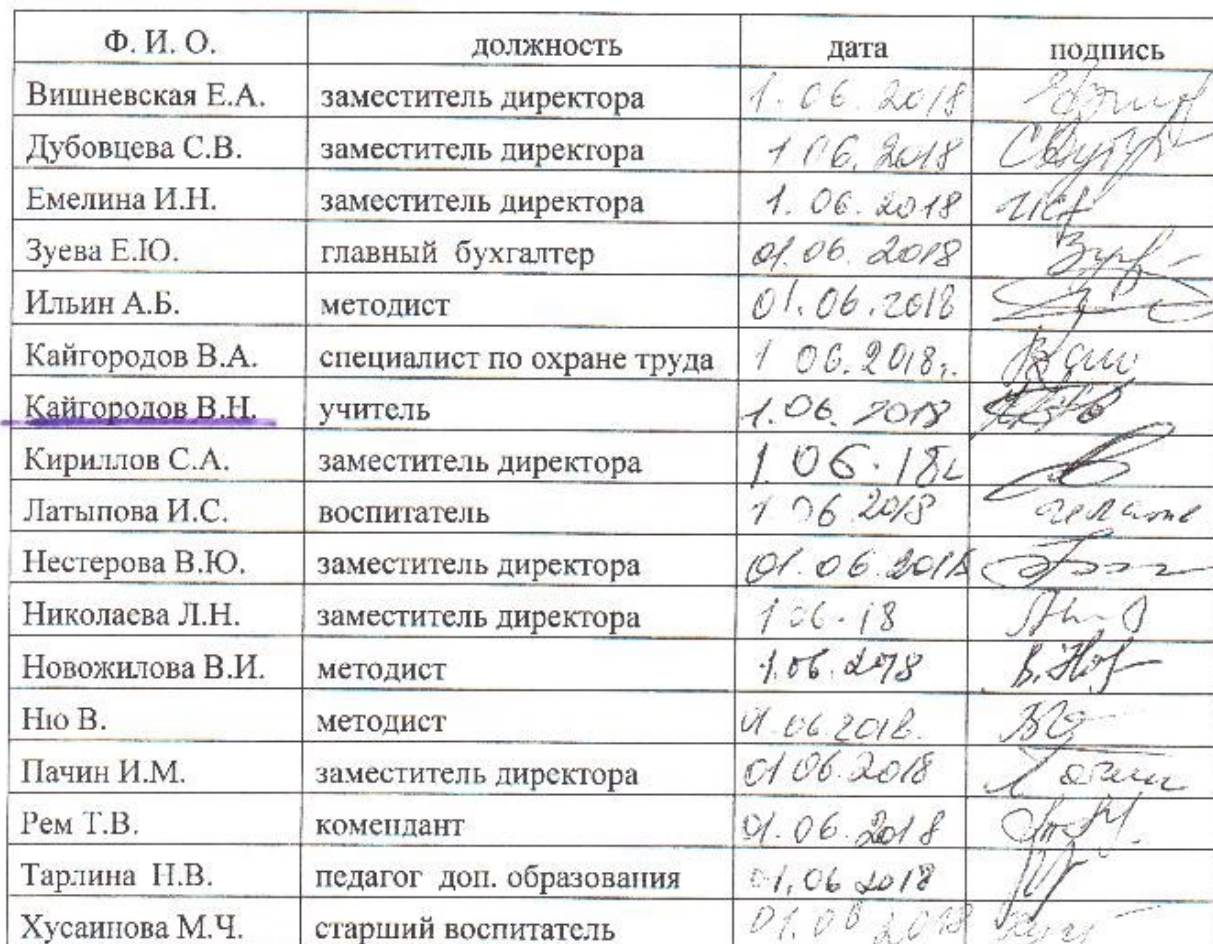 Ф. И. О. должность дата подпись
Вишневская Е.А. заместитель директора 1.06.2018
Дубовцева С.В. заместитель директора 1 06.2018
Емелина И.Н. заместитель директора 1.06.2018
Зуева Е.Ю. главный бухгалтер 01.06.2018
Ильин А.Б. методист 01.06.2018
Кайгородов В.А. специалист по охране труда 1 06.2018г.
Кайгородов В.Н. учитель 1.06.2018
Кириллов С.А. заместитель директора 1.06.18г
Латыпова И.С. воспитатель 1 06 2018
Нестерова В.Ю. заместитель директора 01.06.2018
Николаева Л.Н. заместитель директора 1 06.18
Новожилова В.И. методист 1.06.2018 В.Нов
Ню В. методист 01.06.2018.
Пачин И.М. заместитель директора 01 06.2018
Рем Т.В. комендант 01.06.2018
Тарлина Н.В. педагог доп. образования 01.06 2018
Хусаинова М.Ч. старший воспитатель 01.06 2018